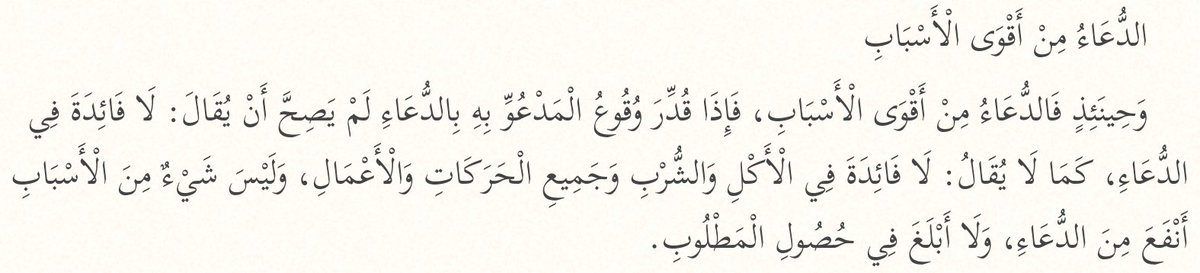 الدُّعَاءُ مِنْ أَقْوَى الْأَسْبَابِ
وَحِينَئِذٍ فَالدُّعَاءُ مِنْ أَقْوَى الْأَسْبَابِ، فَإِذَا قُدِّرَ وُقُوعُ الْمَدْعُوِّ بِهِ بِالدُّعَاءِ لَمْ يَصِحَّ أَنْ يُقَالَ: لَا فَائِدَةَ فِي
الدُّعَاءِ، كَمَا لَا يُقَالُ: لَا فَائِدَةَ فِي الْأَكْلِ وَالشُّرْبِ وَجَمِيعِ الْحَرَكَاتِ وَالْأَعْمَالِ، وَلَيْسَ شَيْءٌ مِنَ الْأَسْبَابِ
أَنْفَعَ مِنَ الدُّعَاءِ، وَلَا أَبْلَغَ فِي حُصُولِ الْمَطْلُوبِ.